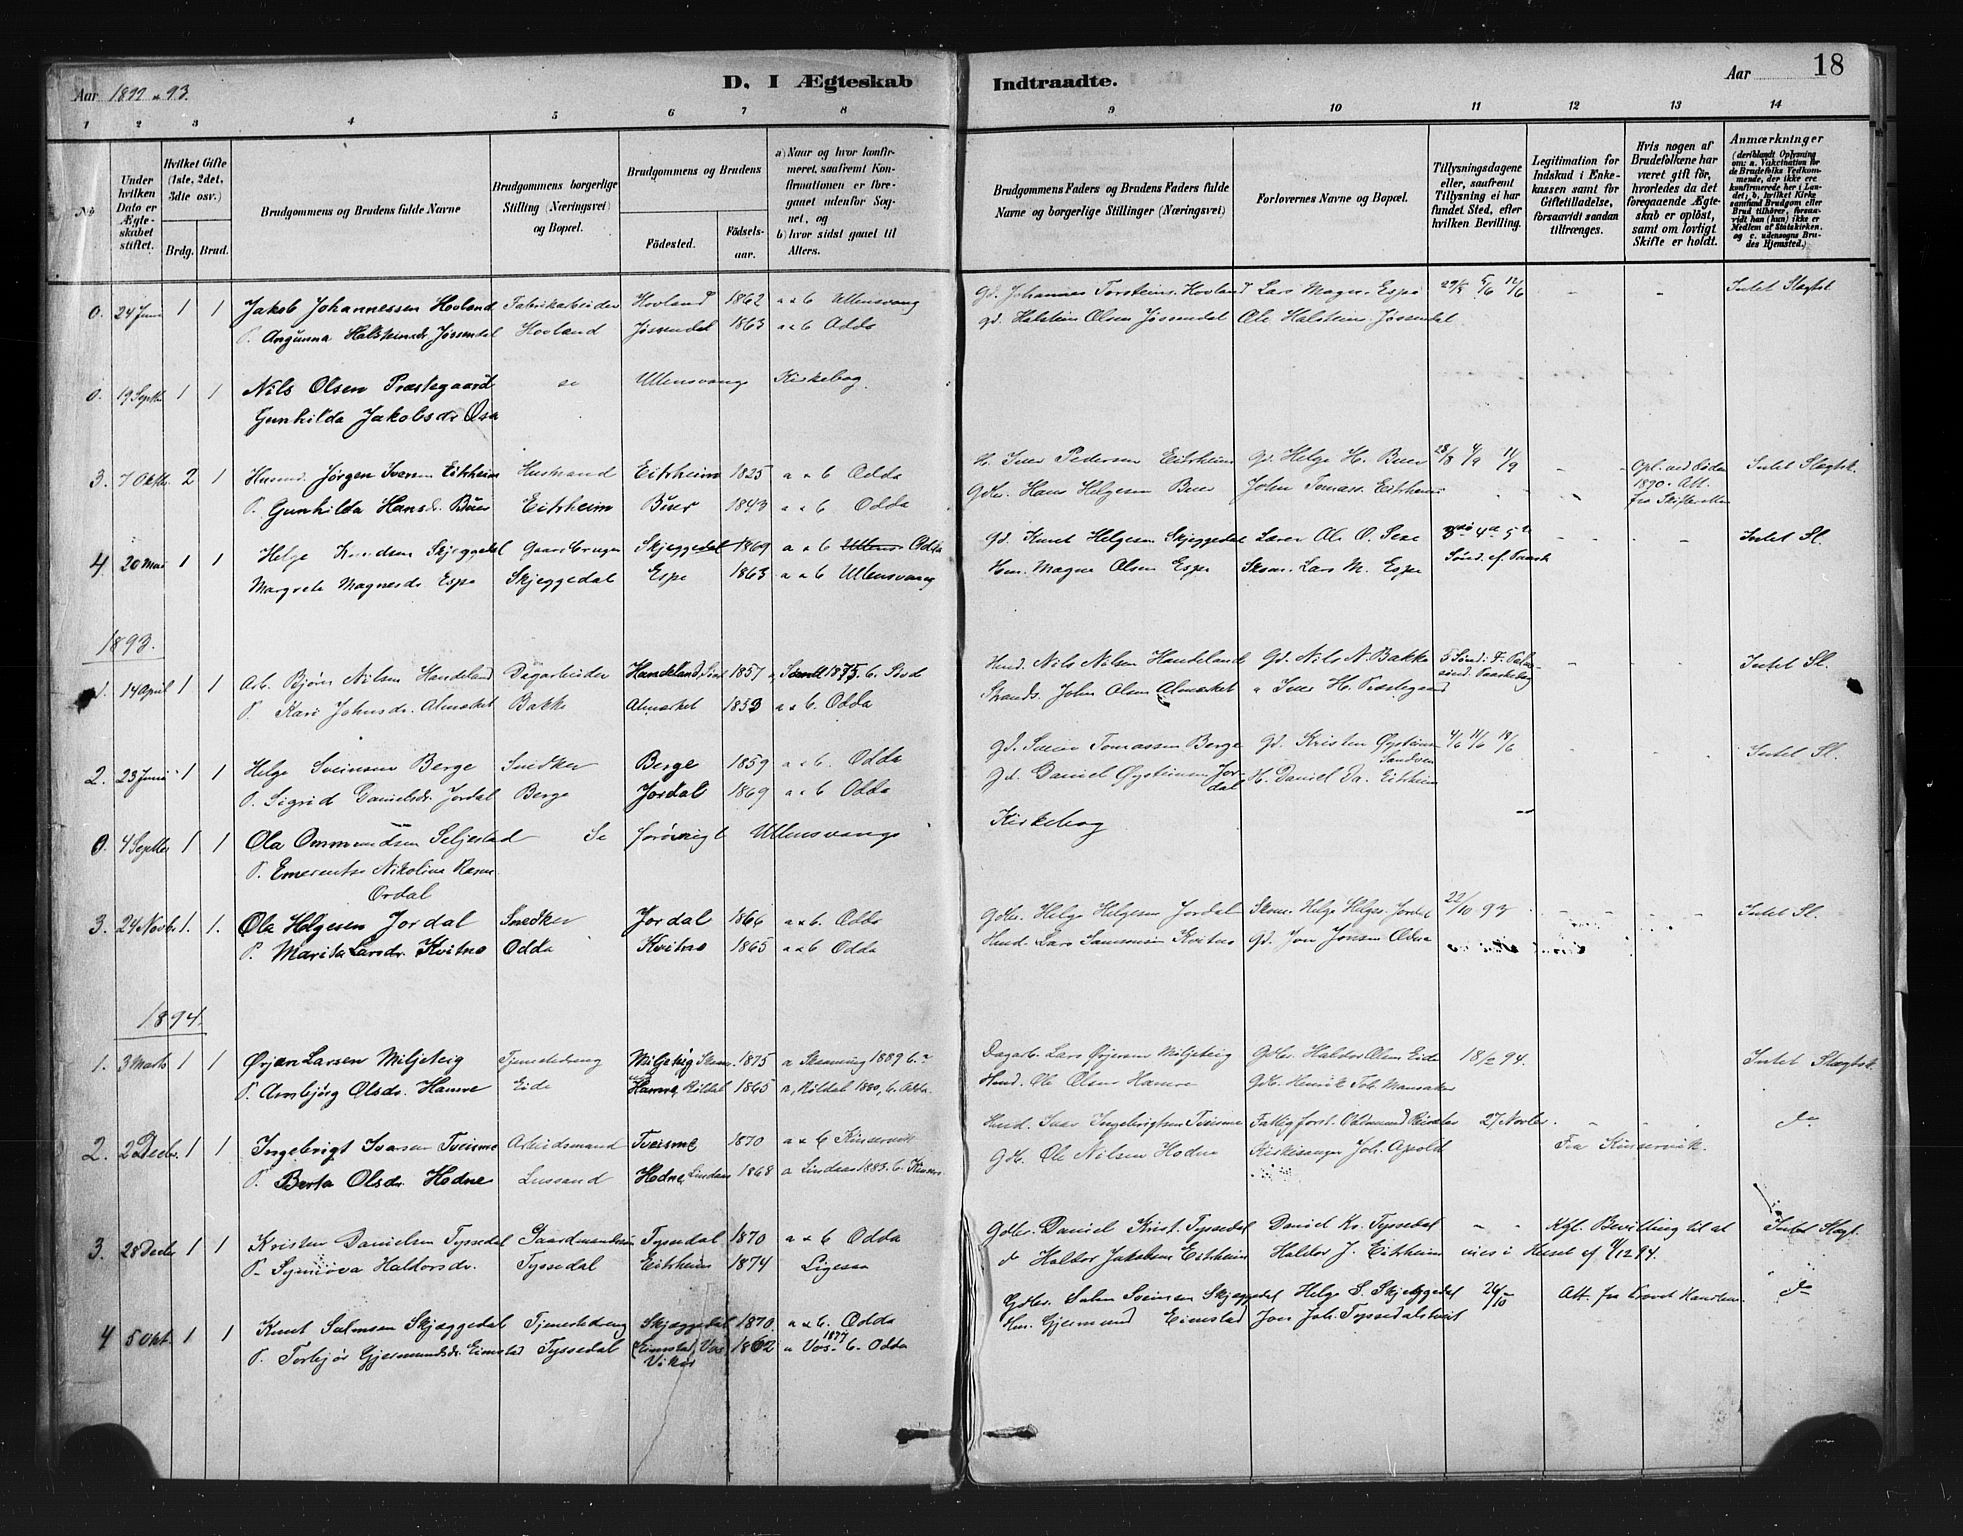 Aar 1892 & 93.
D. I Ægteskab Indtraadte.
Aar 18
1 2 3 4 5 6 7 8 9 10 11 12 13 14
No
Under hvilken Dato er Ægteskabet stiftet.
Hvilket Gifte (1ste, 2det, 3die osv.)
Brdg. Brud.
Brudgommens og Brudens fulde Navne
Brudgommens borgerlige Stilling (Næringsvei) og Bopæl.
Brudgommens og Brudens
Fødested. Fødselsaar.
a) Naar og hvor konfirmeret, saafremt Konfirmationen er foregaaet udenfor Sognet, og
b) hvor sidst gaaet til Alters.
Brudgommens Faders og Brudens Faders fulde Navne og borgerlige Stillinger (Næringsvei)
Forlovernes Navne og Bopæl.
Tillysningsdagene eller, saafremt Tillysning ei har fundet Sted, efter hvilken Bevilling.
Legitimation for Indskud i Enkekassen samt for Giftetilladelse, forsaavidt saadan tiltrænges.
Hvis nogen af Brudefolkene har været gift før, hvorledes da det foregaaende Ægteskab er opløst, samt om lovligt Skifte er holdt.
Anmærkninger (deriblandt Oplysning om: a. Vakcination for de Brudefolks Vedkommende, der ikke ere konfirmerede her i Landet; b. hvilket Kirkesamfund Brudgom eller Brud tilhører, forsaavidt han (hun) ikke er Medlem af Statskirken, og c. udensogns Brudes Hjemsted.)
0. 24 Juni 1 1 Jakob Johannessen Hovland Fabrikarbeider Hovland 1862 a & b Ullensvang Gd. Johannes Torsteins. Hovland Lars Magn. Espe 29/5 5/6 12/6 - - Intet Slagtsk.
P. Angunna Halsteinsdr Jøsendal Hovland Jøsendal 1863 a & b Odda gd. Halstein Olsen Jøssendal Ole Halsteins. Jøssendal
0. 19 Septbr 1 1 Nils Olsen Præstegaard se Ullensvangs Kirkebog.
Gunhilda Jakobsdr Osa
3. 7 Oktbr. 2 1 Jørgen Iversen Eitrheim Husmand Eitrheim 1825 a & b Odda H. Iver Pedersen Eitrheim Gd. Helge H. Buer 28/8 4/9 11/9 - Opl. ved Døden 1890. Att. fra Skifteretten Intet Slagtsk.
P. Gunhilda Hansd. Buer Eitrheim Buer 1843 a & b Odda Gdbr. Hans Helgesen Buer John Tomass. Eitrheim
4. 20 Mai 1 1 Helge Knudsen Skjeggedal Gaardbruger Skjeggedal 1869 a & b Odda Gd. Knut Helgesen Skjeggedal Lærer Ole O. 3die 4de 5te - - Intet Sl.
Margrete Magnesdr. Espe Skjeggedal Espe 1863 a & b Ullensvang Hm. Magne Olsen Espe Skom. Lars M. Espe Sønd. ef. Paask
1893.
1. 14 April 1 1 Arb. Bjørn Nilsen Handeland Dagarbeider Handeland, 1857 1875. b. Husd. Nils Nilsen Handeland Gd. Nils N. Bakke - - Intet Sl.
P. Kari Johnsdr. Almerket Bakke Almerket 1853 a & b. Odda Strands. John Olsen Almerket Iver H. Præstegaard
2. 23 Juni 1 1 Helge Sveinsen Berge Snedker Berge 1859 a & b. Odda gd. Svein Tomassen Berge gd. Kristen Øysteins. Sandven 4/6 11/6 18/6 Intet Sl.
P. Sigrid Danielsdr. Jordal Berge Jordal 1869 a & b Odda gd. Daniel Øysteinsen Jordal H. Daniel Da. Eitrheim
0. 4 Septbr 1 1 Ola Ommundsen Seljestad Se forøvrigt Ullensvangs Kirkebog
P. Emerentse Nikolina
Ordal
3. 24 Novbr 1. 1. Ole Helgesen Jordal Snedker Jordal 1866 a & b. Odda Gdbr. Helge Helgesen Jordal Skom. Helge Helges. Jordal 22/10 93 - - Intet Sl.
P. Marita Larsdr. Kvitno Odda Kvitno 1865 a & b Odda Husd. Lars Samsonsen Kvitno gd. Jon Jonsen Odda
1894.
1. 3 Marts 1 1 Ørjan Larsen Miljeteig Tjenestedreng Miljeteig 1875 a 1889 b. Dagarb. Lars Ørjansen Miljeteig Gdbr. Haldor Olsen Eide 18/2 94. Intet Slagtsk.
P. Ambjørg Olsdr. Hamre Eide Hamre, Röldal 1865 a, Röldal 1880, b. Odda. Husd. Ole Olsen Hamre Gdb. Henrik Tob. Mannsaker
2. 2 Decbr. 1 1 Ingebrigt Ivarsen Tveisme Arbeidsmand Tveisme 1870 a & b Kinservik Husd. Ivar Ingebrigtsen Tveisme Fattigforst. 27 Novbr - do
P. Berta Olsdr. Hodne Lussand Hodne, Lindaas 1868 a Lindaas 1883. b. Kinserv. Gdb. Ole Nilsen Hodne Kirkesanger Joh. Apold Fra Kinservik.
3. 28 Decbr 1 1 Kristen Danielsen Tyssedal Gaardmandssøn Tyssedal 1870 a & b Odda Gdbr. Daniel Krist. Tyssedal Daniel Kr. Tyssedal - - Kgl. Bevilling til at Intet Slagt.
P. Synnöva Haldorsdr. Tyssedal Eitrheim 1874 Ligesaa do Haldor Jakobsen Eitrheim Haldor J. Eitrheim vies i Huset af 11/12 94.
4 5 Okt. 1 1 Knut Salmsen Skjæggedal Tjenestedreng Skjæggedal 1870. a & b. Odda Gdbr. Salm Sveinsen Skjæggedal Helge S. Skjeggedal 26/10 Att. fra do
P. Torbjør Gjermundsdr. Eimstad Tyssedal (Eimstad, Vos) Vikør 1862 a Vos. 1877 b. Odda Hm. Gjermund Eimstad Jon Joh. Tyssedalstveit